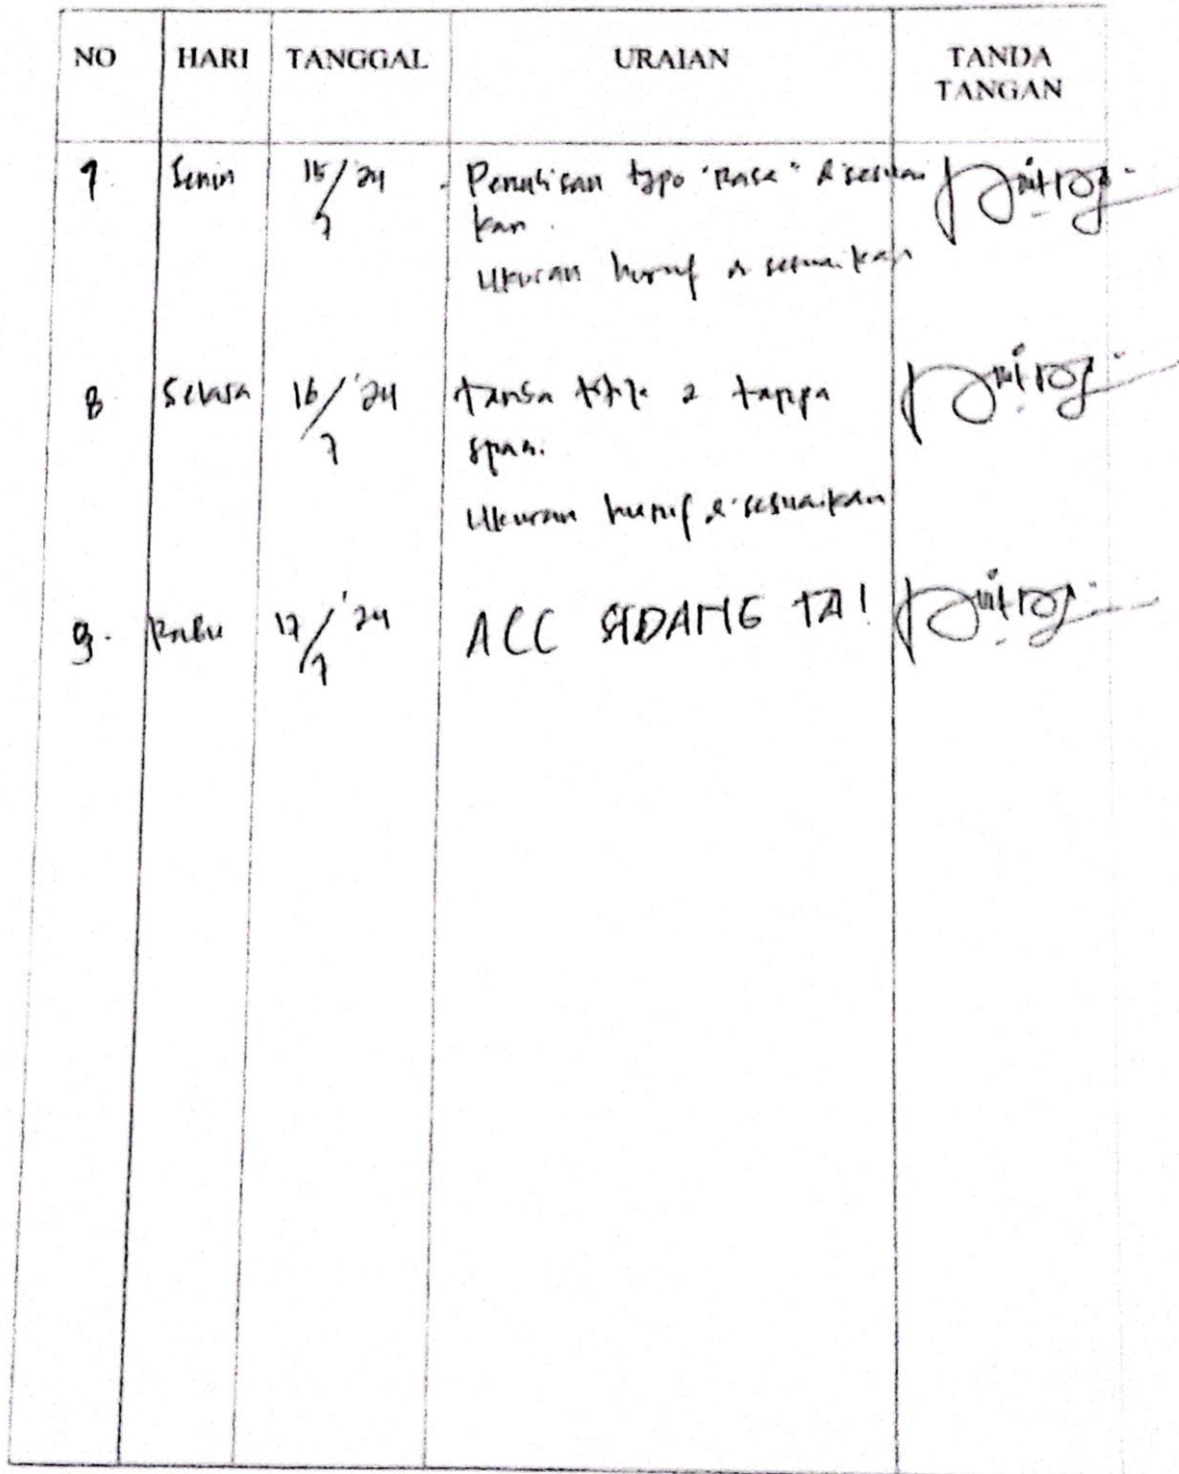 NO HARI TANGGAL URAIAN TANDA TANGAN
7. Senin 15/7 '24 - Penulisan typo "Rasa" disesuai
kan.
Ukuran huruf disesuaikan
8 Selasa 16/7 '24 tanda titik 2 tanpa
spasi.
Ukuran huruf disesuaikan
9. Rabu 17/7 '24 ACC SIDANG TA!